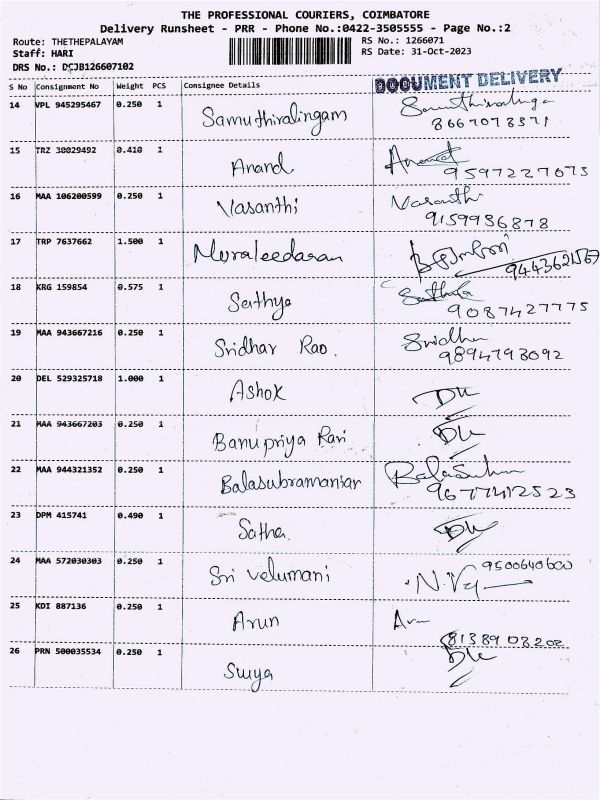 THE PROFESSIONAL COURIERS, COIMBATORE
Delivery Runsheet - PRR - Phone No.:0422-3505555 - Page No.:2
Route: THETHEPALAYAM
RS No.: 1266071
Staff: HARI
RS Date: 31-Oct-2023
DRS No.: DCJB126607102
DOCUMENT DELIVERY
S No Consignment No Weight PCS Consignee Details
14 VPL 945295467 0.250 1 Samuthiralingam
8667073371
15 TRZ 30029492 0.410 1 Anand Anand
9597227675
16 MAA 106200599 0.250 1 Vasanthi Vasanthi
9159936878
17 TRP 7637662 1.500 1 Muraleedaran
18 KRG 159854 0.575 1 Sathya
9087427775
19 MAA 943667216 0.250 1 Sridhar Rao. Sridhar
9894793092
20 DEL 529325718 1.000 1 Ashok
21 MAA 943667203 0.250 1 Banupriya Ravi
22 MAA 944321352 0.250 1 Balasubramaniar
9677412523
23 DPM 415741 0.490 1 Satha.
24 MAA 572030303 0.250 1 Sri velumani 9500640600
25 KDI 887136 0.250 1 Arun
8138903202
26 PRN 500035534 0.250 1 Surya